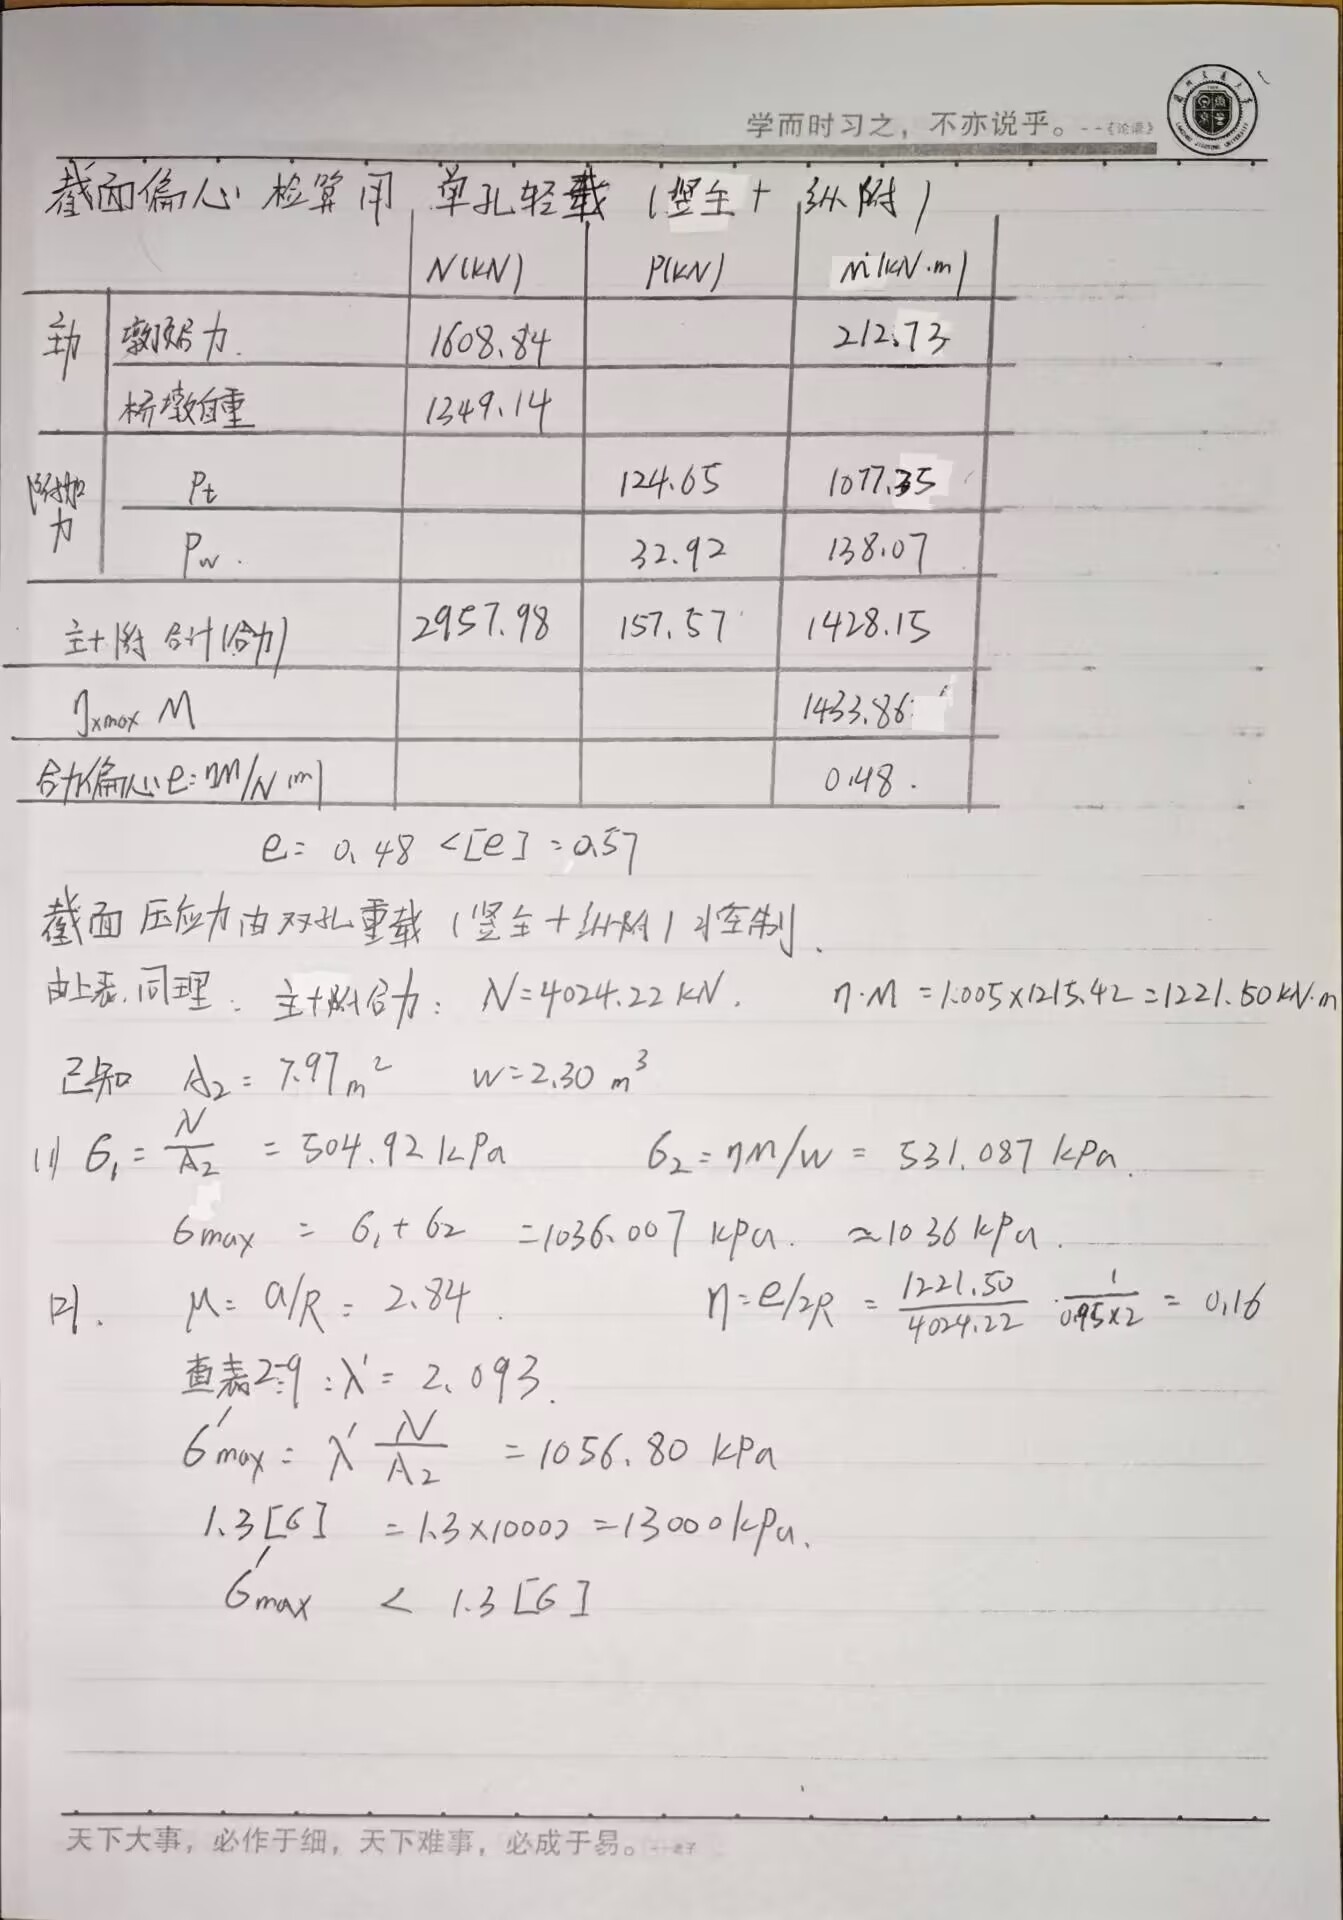 学而时习之，不亦说乎。--《论语》
截面偏心检算用 单孔轻载（竖主+纵附）
N(kN) P(kN) M(kN·m)
主力 墩顶力 1608.84 212.73
桥墩自重 1349.14
附加力 Pt 124.65 1077.35
Pw 32.92 138.07
主+附 合计(合力) 2957.98 157.57 1428.15
ηxmax M 1433.86
合力偏心e=ηM/N(m) 0.48
e=0.48<[e]=0.57
截面压应力由双孔重载（竖主+纵附）控制
由上表,同理：主+附合力：N=4024.22kN. η·M=1.005×1215.42=1221.50kN·m
已知 A2=7.97m² w=2.30m³
(1) б1=N/A2=504.92kPa б2=ηM/w=531.087kPa
бmax=б1+б2=1036.007kPa.≈1036kPa.
(2). μ=a/R=2.84 η=e/2R=1221.50/4024.22·1/0.95×2=0.16
查表2-9:λ'=2.093.
б'max=λ'N/A2=1056.80kPa
1.3[б]=1.3×10000=13000kPa.
б'max<1.3[б]
天下大事，必作于细，天下难事，必成于易。--老子